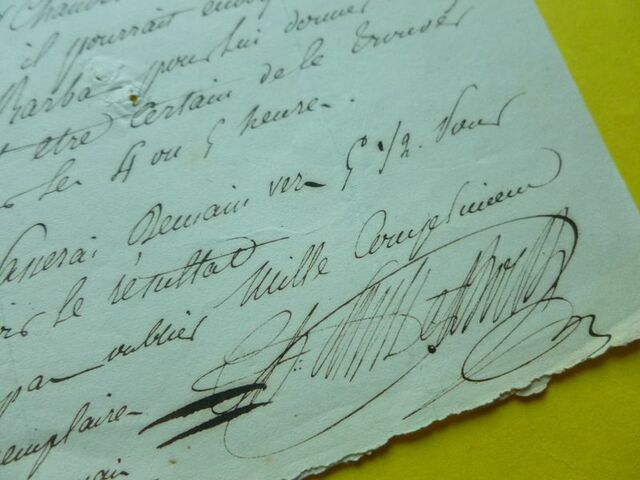 il pourrait envoy
Barba pour lui donner
être certain de le trouver
les 4 ou 5 heure.
passerai Demain ver 5 1/2. Pour
le résultat
pas oublier Mille Compliment
emplaire